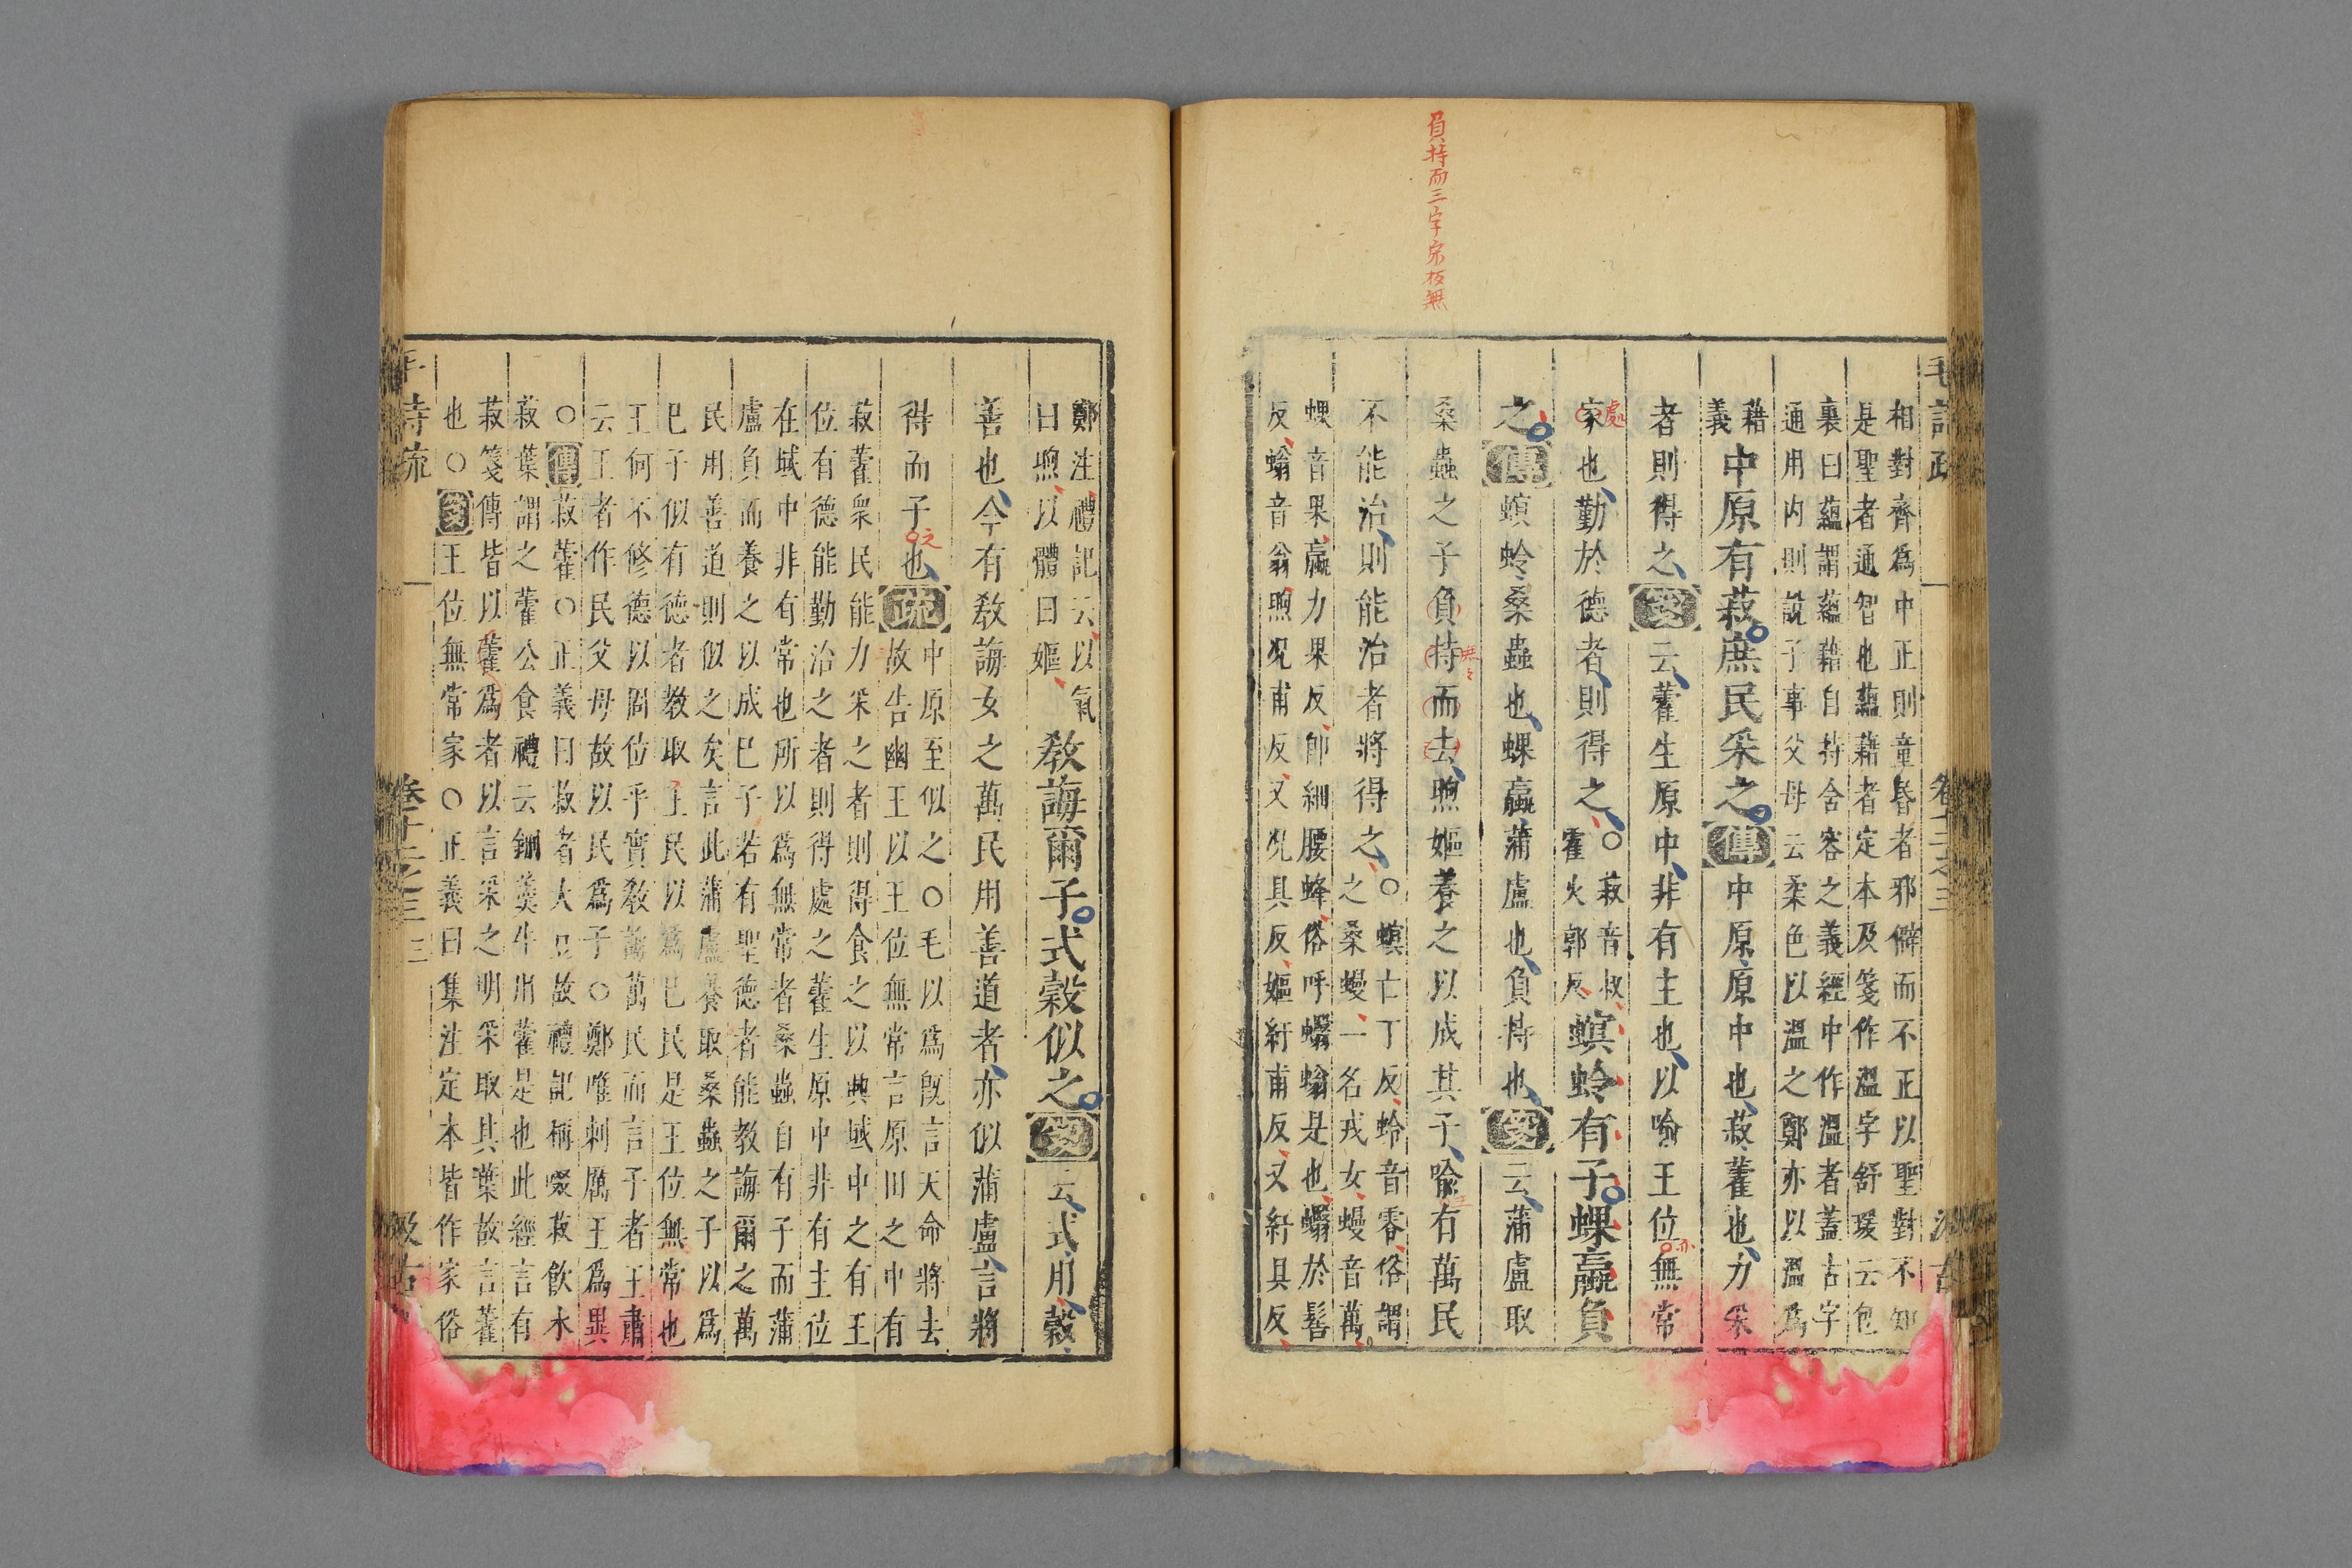 負持而三字宋板無
毛詩疏 卷十二之三 汲古
相對齊爲中正則童昬者邪僻而不正以聖對不知
是聖者通智也蘊藉者定本及箋作溫字舒瑗云包
裏曰蘊謂蘊藉自持含容之義經中作溫者蓋古字
通用内則說子事父母云柔色以溫之鄭亦以溫爲
藉
義
中原有菽庶民采之傳中原原中也菽藿也力采
者則得之箋云藿生原中非有主也以喻王位無常
亦
家也勤於德者則得之○菽音叔
藿火郭反
螟蛉有子蜾蠃負
處
之傳螟蛉桑蟲也蜾蠃蒲盧也負持也箋云蒲盧取
桑蟲之子負持而去煦嫗養之以成其子喻有萬民
不能治則能治者將得之○螟亡丁反蛉音零俗謂
之桑蟃一名戎女蟃音萬
蜾音果蠃力果反卽細腰蜂俗呼蠮螉是也蠮於髻
反螉音翁煦况甫反又况具反嫗紆甫反又紆具反
鄭注禮記云以氣
曰煦以體曰嫗
敎誨爾子式穀似之箋云式用穀
善也今有敎誨女之萬民用善道者亦似蒲盧言將
得而子也疏中原至似之○毛以爲旣言天命將去
之
故告幽王以王位無常言原田之中有
菽藿衆民能力采之者則得食之以興域中之有王
位有德能勤治之者則得處之藿生原中非有主位
在域中非有常也所以爲無常者桑蟲自有子而蒲
盧負而養之以成巳子若有聖德者能敎誨爾之萬
民用善道則似之矣言此蒲盧養取桑蟲之子以爲
巳子似有德者敎取王民以爲巳民是王位無常也
王何不修德以固位乎實敎誨萬民而言子者王肅
云王者作民父母故以民爲子○鄭唯刺厲王爲異
○傳菽藿○正義曰菽者大豆故禮記稱啜菽飲水
菽葉謂之藿公食禮云鉶羹牛用藿是也此經言有
菽箋傳皆以藿爲者以言采之明采取其葉故言藿
也○箋王位無常家○正義曰集注定本皆作家俗
毛詩疏 卷十二之三 三 汲古